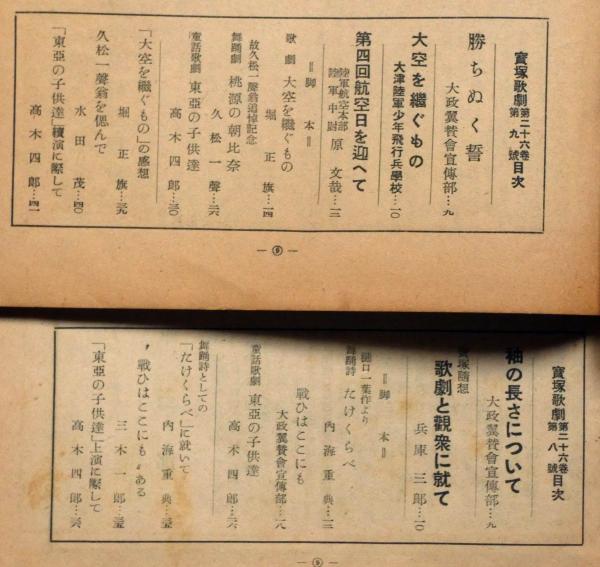 寳塚歌劇 第二十六卷 第九號 目次
勝ちぬく誓
大政翼賛會宣傳部…九
大空を繼ぐもの
大津陸軍少年飛行兵學校…一〇
第四回航空日を迎へて
陸軍航空本部
陸軍中尉 原文哉…一二
＝脚本＝
歌劇 大空を繼ぐもの
堀正旗…一四
故久松一聲翁追悼記念
舞踊劇 桃源の朝比奈
久松一聲…二六
童話歌劇 東亞の子供達
髙木四郎…三〇
「大空を繼ぐもの」の感想
堀正旗…三九
久松一聲翁を偲んで
水田茂…四〇
「東亞の子供達」續演に際して
髙木四郎…四一
— 9 —
寳塚歌劇 第二十六卷 第八號 目次
袖の長さについて
大政翼賛會宣傳部…九
寳塚隨想
歌劇と觀衆に就て
兵庫三郎…一〇
＝脚本＝
樋口一葉作より
舞踊詩 たけくらべ
内海重典…一二
戰ひはここにも
大政翼賛會宣傳部…一八
童話歌劇 東亞の子供達
髙木四郎…二六
舞踊詩としての
「たけくらべ」に就いて
内海重典…
〝戰ひはここにも〟ある
三木一郎…
「東亞の子供達」上演に際して
髙木四郎…
— 9 —